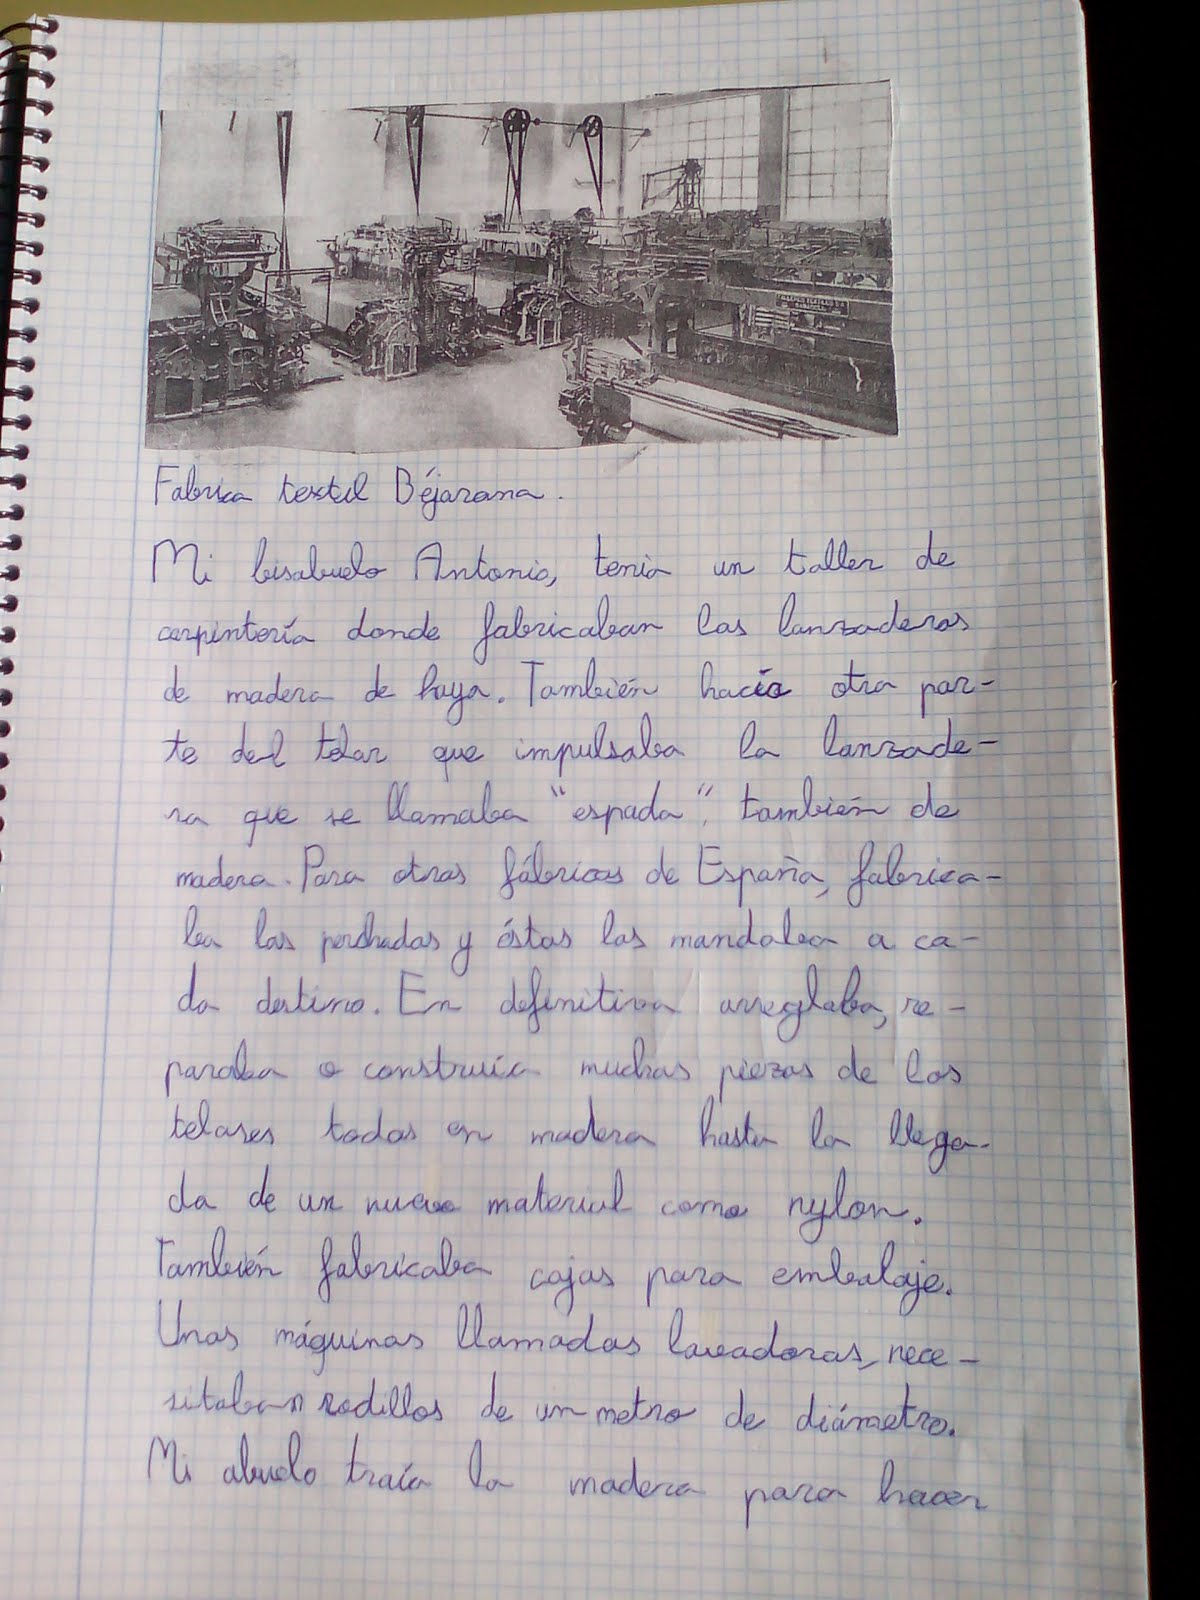 Fabrica textil Béjarana.
Mi bisabuelo Antonio, tenia un taller de
carpintería donde fabricaban las lanzaderas
de madera de haya. También hacía otra par-
te del telar que impulsaba la lanzade-
ra que se llamaba "espada", también de
madera. Para otras fábricas de España, fabrica-
ba las perchadas y éstas las mandaba a ca-
da destino. En definitiva arreglaba, re-
paraba o construía muchas piezas de los
telares todas en madera hasta la llega-
da de un nuevo material como nylon.
También fabricaba cajas para embalaje.
Unas máquinas llamadas lavadoras, nece-
sitaban rodillos de un metro de diámetro.
Mi abuelo traía la madera para hacer